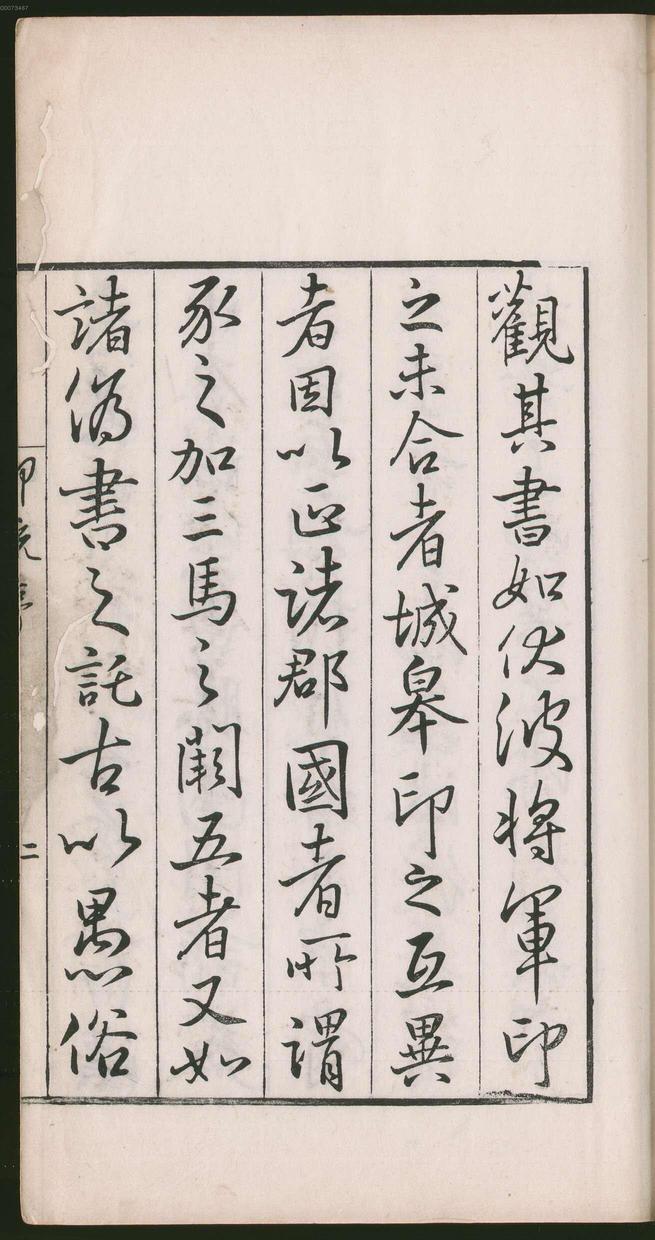 觀其書如伏波將軍印
之未合者城皋印之互異
者因以正諸郡國者所謂
豕之加三馬之闕五者又如
諸偽書之託古以愚俗
二
00073467